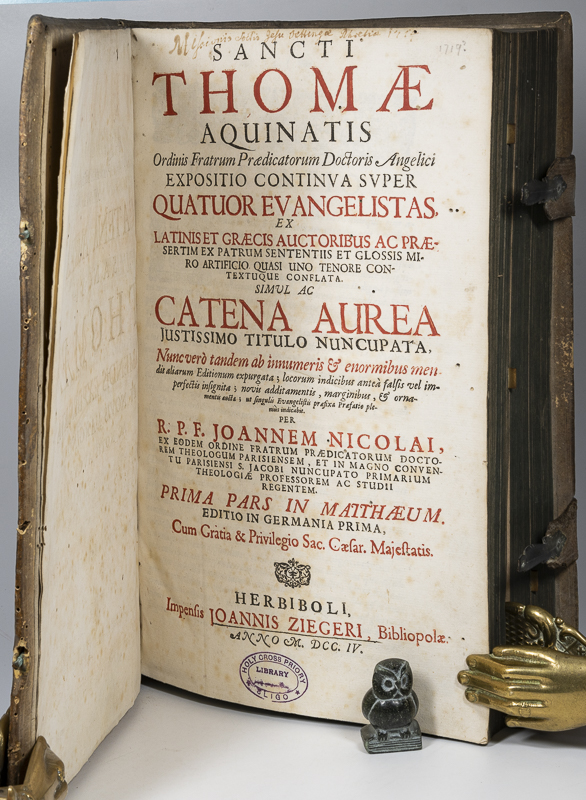 Missionis Soctis Jesu
SANCTI
THOMÆ
AQUINATIS
Ordinis Fratrum Prædicatorum Doctoris Angelici
EXPOSITIO CONTINVA SVPER
QUATUOR EVANGELISTAS,
EX
LATINIS ET GRÆCIS AUCTORIBUS AC PRÆ-
SERTIM EX PATRUM SENTENTIIS ET GLOSSIS MI-
RO ARTIFICIO QUASI UNO TENORE CON-
TEXTUQUE CONFLATA.
SIMUL AC
CATENA AUREA
JUSTISSIMO TITULO NUNCUPATA,
Nunc verò tandem ab innumeris & enormibus men-
dis aliarum Editionum expurgata; locorum indicibus anteà falsis vel im-
perfectis insignita; novis additamentis, marginibus, & orna-
mentis aucta; ut singulis Evangelistis præfixa Præfatio ple-
niùs indicabit.
PER
R. P. F. JOANNEM NICOLAI,
EX EODEM ORDINE FRATRUM PRÆDICATORUM DOCTO-
REM THEOLOGUM PARISIENSEM, ET IN MAGNO CONVEN-
TU PARISIENSI S. JACOBI NUNCUPATO PRIMARIUM
THEOLOGIÆ PROFESSOREM AC STUDII
REGENTEM.
PRIMA PARS IN MATTHÆUM.
EDITIO IN GERMANIA PRIMA,
Cum Gratia & Privilegio Sac. Cæsar. Majestatis.
HERBIBOLI,
Impensis JOANNIS ZIEGERI, Bibliopolæ.
ANNO M. DCC. IV.
HOLY CROSS PRIORY
LIBRARY
SLIGO